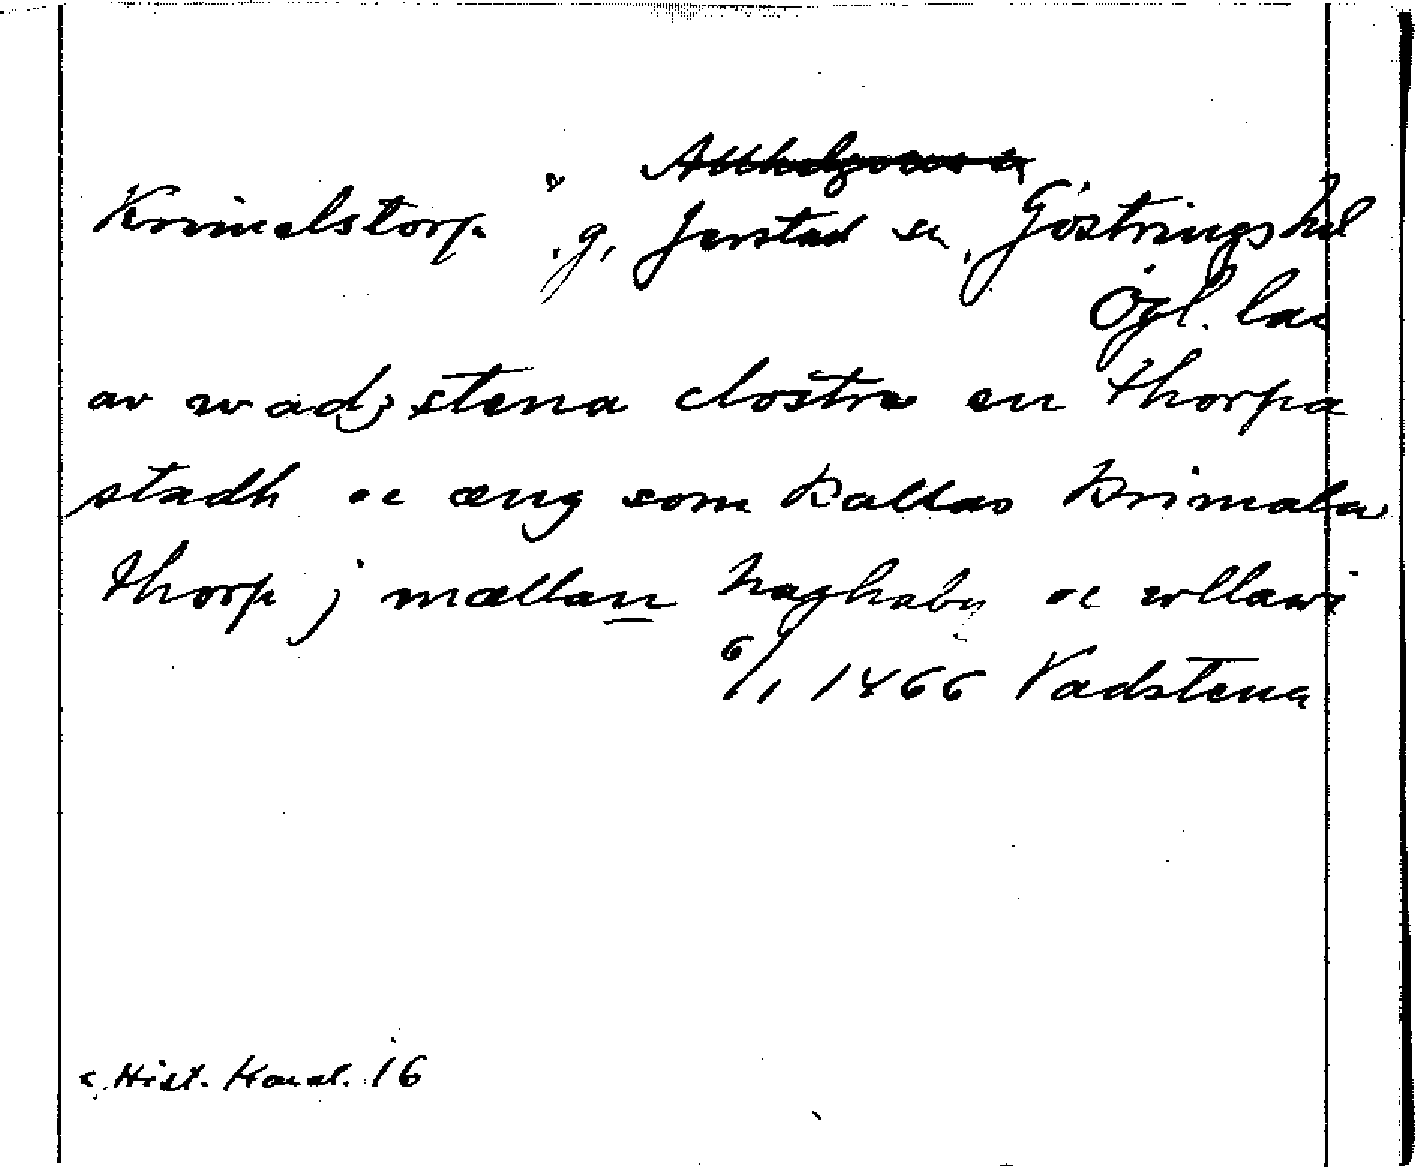 Krimelstorp g. Järstad sn, Göstrings hd
Ögl. län
av wadzstena clostre en thorpa
stadh oc æng som kallas krimala
thorp j mællan haghaby oc wllawi
6/1 1466 Vadstena
c Hist. Handl. 16